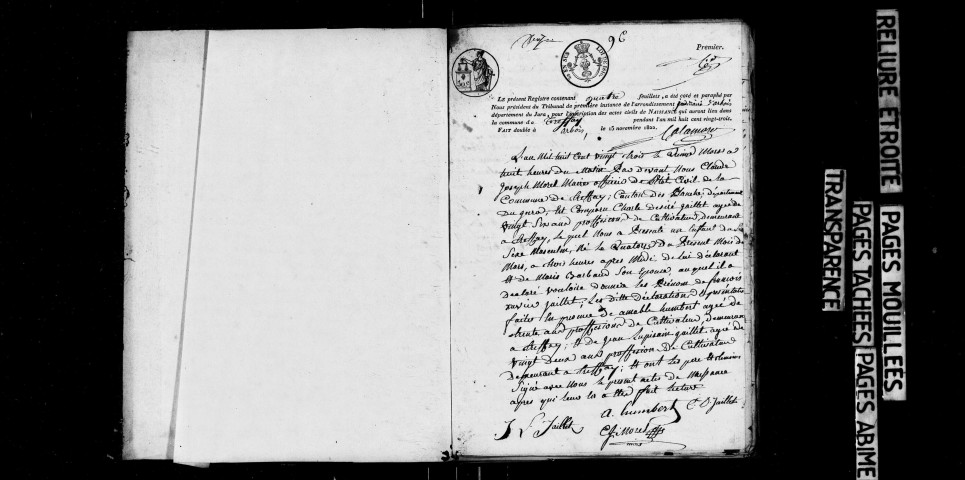 Premier.
Le présent Registre contenant quatre feuillets, a été coté et paraphé par
Nous président du Tribunal de première instance de l'arrondissement
département du Jura, pour l'inscription des actes civils de NAISSANCE qui auront lieu dans
la commune de Treffay pendant l'an mil huit cent vingt-trois.
FAIT double à arbois, le 15 novembre 1822.
L'an Mil huit Cent vingt trois le Mars a
huit heures du Matin Par devant Nous Claude
Joseph Morel Maire officier de l'état Civil de la
Commune de treffay; Canton des Planche, département
Du jura; Est Comparu Charle desiré jaillet agé de
vingt six ans proffession de Cultivateur, demeurant
a treffay, le quel Nous a Presenté un Enfant du
Sexe Masculin, Né le Quatorze du Present Mois de
Mars, a heures apres Midi de lui déclarant
Et de Marie Barbaud Son Epouse, au quel il a
declaré vouloire donner les Prénom de françois
xavier jaillet; Les ditte déclarations et presentation
faites En presence de amable humbert agée de
trente ans proffession de Cultivateur, demeurant
a treffay; Et de jean jaillet agé de
vingt Deux ans proffession De Cultivateur
demeurant a treffay; Et ont les pere Et temoins
Signé avec Nous le present acte de Naissance
apres qui leur En a été fait lecture
a. humbert C D Jaillet
J Jaillet
C J Morel
RELIURE ETROITE
PAGES MOUILLEES
TRANSPARENCE
PAGES TACHEES
PAGES ABIME